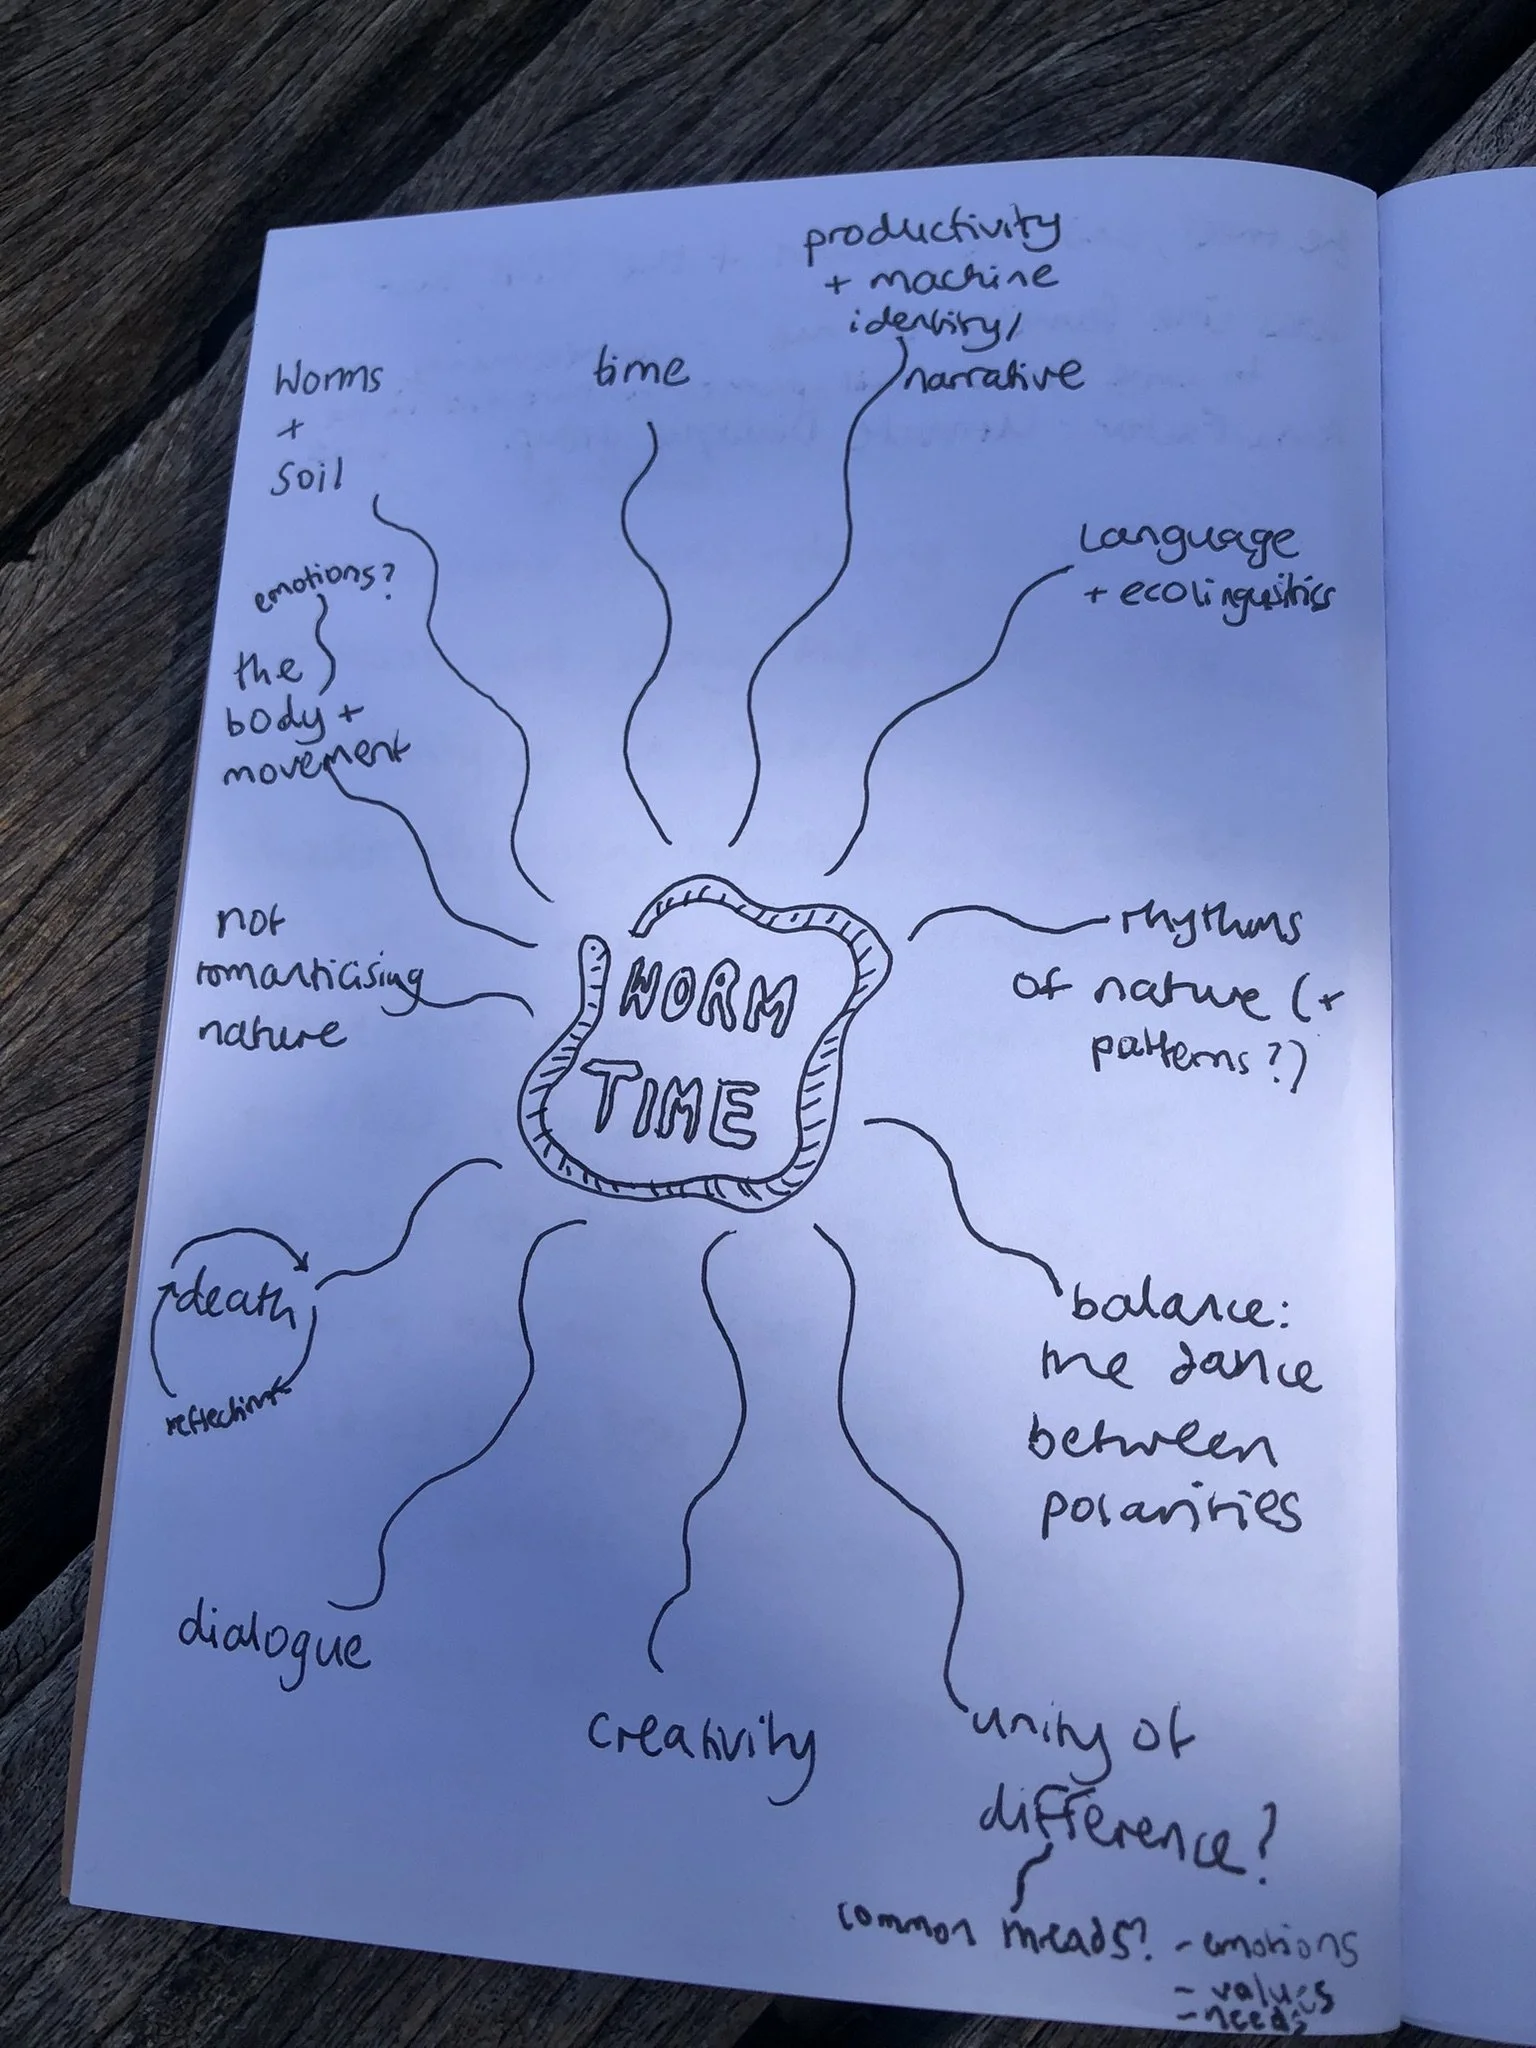 productivity
+ machine
identity/
narrative
time
Worms
+
Soil
Language
+ ecolinguisitics
emotions?
the
body +
movement
not
romanticising
nature
WORM
TIME
rhythms
of nature (+
patterns?)
death
reflection
balance:
the dance
between
polarities
dialogue
creativity
unity of
difference?
common threads? - emotions
- values
- needs